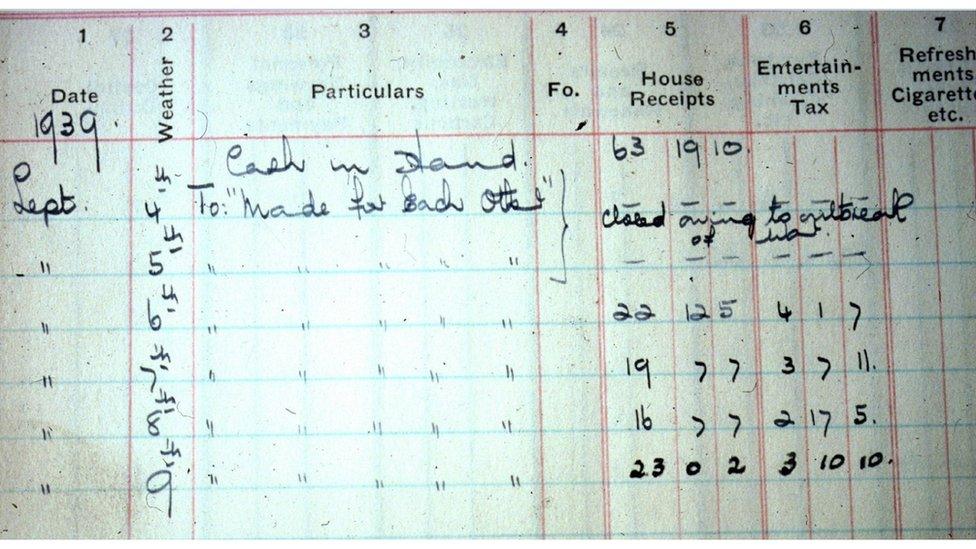 1 2 3 4 5 6 7
Date Weather Particulars Fo. House Receipts Entertain- ments Tax Refresh ments Cigarette etc.
1939.
Cash in Hand. 63 19 10.
Sept. 4 F. To: "Made for Each Other" closed owing to outbreak
of war.
" 5 F. " " " " " — — — — — —
" 6 F. " " " " " 22 12 5 4 1 7
" 7 F. " " " " " 19 7 7 3 7 11.
" 8 F. " " " " " 16 7 7 2 17 5.
" 9 F. " " " " " 23 0 2 3 10 10.